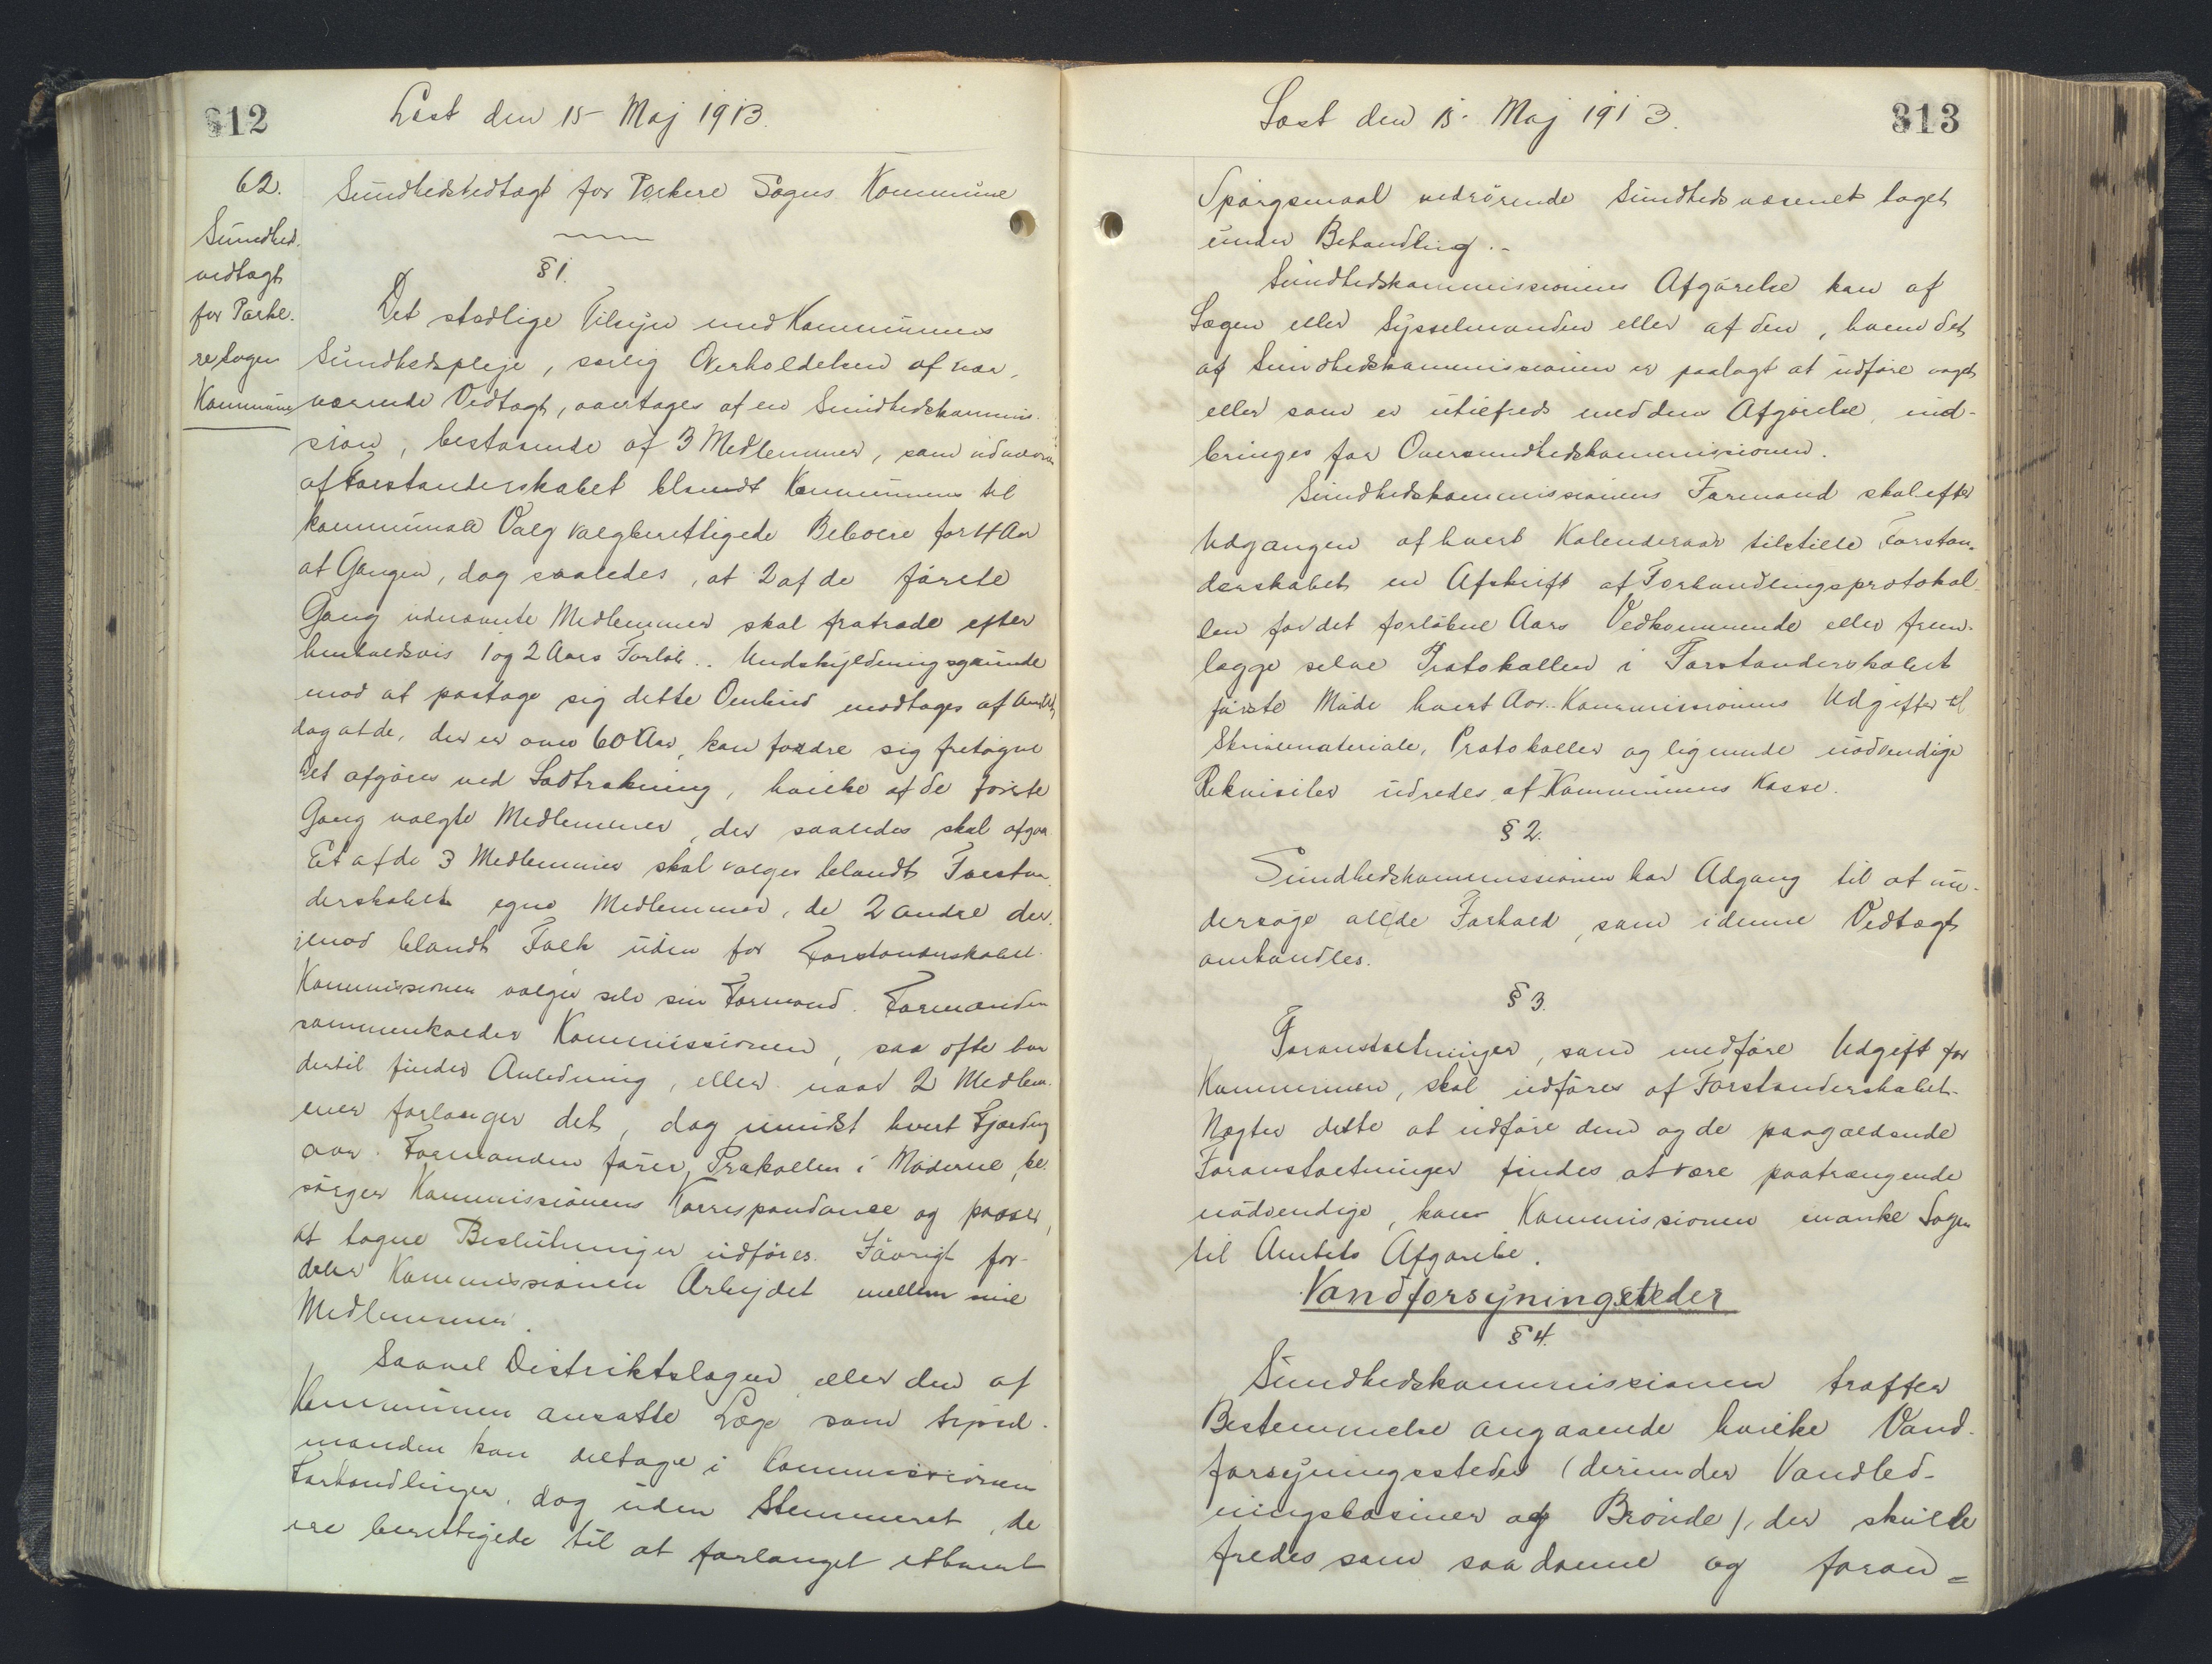 812
Læst den 15 Maj 1913.
62.
Sundhedsvedtægt for Porkere Sogns Kommune
Sundhed.
vedtægt
for Porke.
re sogns
Kommune
§ 1.
Det stedlige Tilsyn med Kommunens
Sundhedspleje, særlig Overholdelsen af nær,
værende Vedtægt, overtages af en Sundhedskommis-
sion, bestaaende af 3 Medlemmer, som udnævnes
af Forstanderskabet blandt Kommunens til
kommunale Valg valgberettigede Beboere for 4 Aar
at Gangen, dog saaledes, at 2 af de første
Gang udnævnte Medlemmer skal fratræde efter
henholdsvis 1 og 2 Aars Forløb.. Undskyldningsgrunde
mod at paatage sig dette Ombud modtages af Amtet,
dog at de, der er over 60 Aar, kan fordre sig fritagne
Det afgøres ved Lodtrækning, hvilke af de første
Gang valgte Medlemmer, der saaledes skal afgaa
Et af de 3 Medlemmer skal vælges blandt Forstan
derskabets egne Medlemmer, de 2 andre der.
imod blandt Folk uden for Forstanderskabet.
Kommissionen vælger selv sin Formand. Formanden
sammenkalder Kommissionen, saa ofte han
dertil finder Anledning, eller naar 2 Medlem.
mer forlanger det, dog mindst hvert Fjerding
aar. Formanden fører Protokollen i Møderne, be.
sørger Kommissionens Korrespondance og passer,
at tagne Beslutninger udføres. Iøvrigt for-
deler Kommissionen Arbejdet mellem sine
Medlemmer.
Saavel Distriktslægen eller den af
Kommunen ansatte Læge som Syssel.
manden kan deltage i Kommissionens
Forhandlinger, dog uden Stemmeret, de
ere berettigede til at forlanget ethvert
Læst den 15. Maj 1913.
813
Spørgsmaal vedrørende Sundhedsvæsenet taget
under Behandling.-
Sundhedskommissionens Afgørelse kan af
Lægen eller Sysselmanden eller af den, hvem det
af Sundhedskommissionen er paalagt at udføre noget
eller som er utilfreds med dens Afgørelse, ind-
bringes for Oversundhedskommissionen.
Sundhedskommissionens Formand skal efter
Udgangen af hvert Kalenderaar tilstille Forstan.
derskabet en Afskrift af Forhandlingsprotokol
len for det forløbne Aars Vedkommende eller frem-
lægge selve Protokollen i Forstanderskabet
første Møde hvert Aar. Kommissionens Udgifter til
Skrivemateriale, Protokoller og lignende nødvendige
Rekvisiter udredes af Kommunens Kasse.
§ 2.
Sundhedskommissionen har Adgang til at un-
dersøge alle de Forhold, som i denne Vedtægt
omhandles.
§ 3.
Foranstaltninger, som medføre Udgift for
Kommunen, skal udføres af Forstanderskabet.
Nægter dette at udføre dem og de paagældende
Foranstaltninger findes at være paatrængende
nødvendige, kan Kommissionen indanke Sagen
til Amtets Afgørelse.
Vandforsyningssteder
§ 4.
Sundhedskommissionen træffer
Bestemmelse angaaende hvilke Vand-
forsyningssteder (derunder Vandled-
ningsbasiner og Brønde), der skulle
fredes som saadanne og foran=